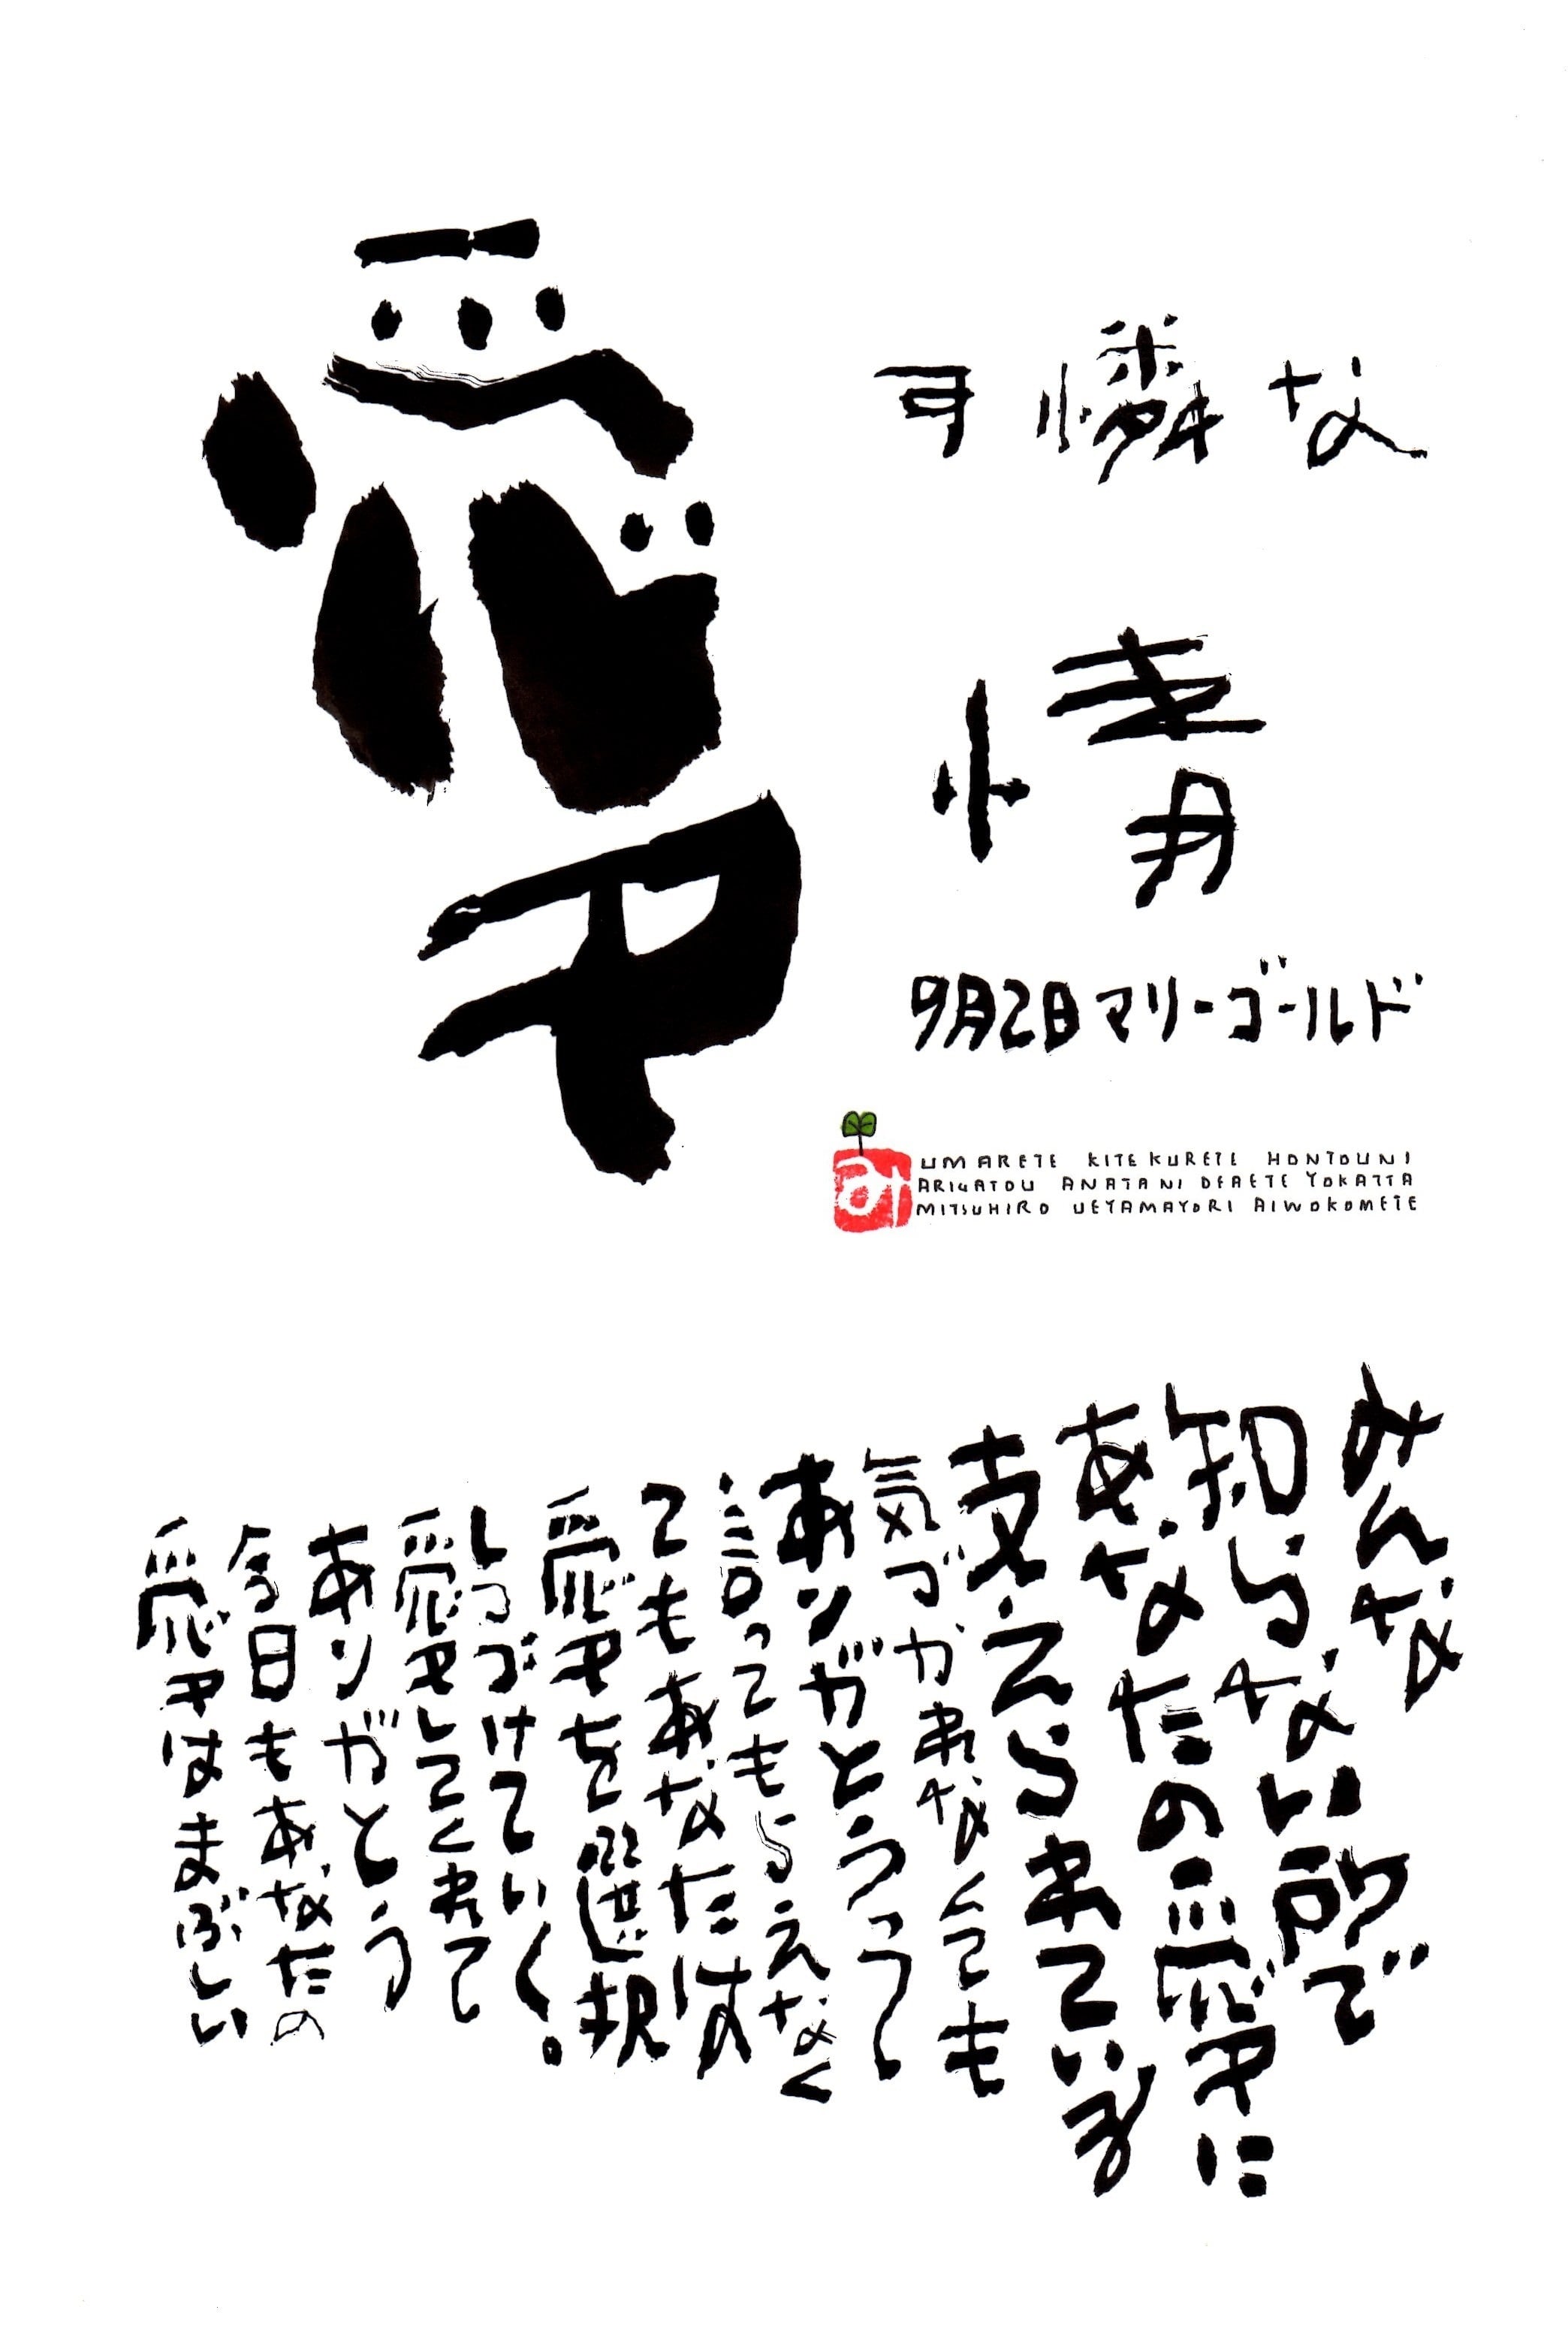 可憐な
愛情
9月2日マリーゴールド
UMARETE KITE KURETE HONTOUNI
ARIGATOU ANATANI DEAETE YOKATTA
MITSUHIRO UEYAMAYORI AIWOKOMETE
ai
みんな
知らない所で
あなたの愛に
支えられている
気づかれなくても
ありがとうって
言ってもらえなく
てもあなたは
愛を選択
しつづけていく。
愛してくれて
ありがとう
今日もあなたの
愛はまぶしい